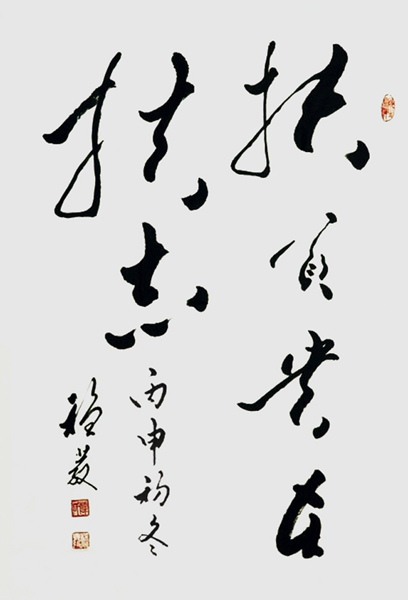 扶贫贵在
扶志
丙申初冬